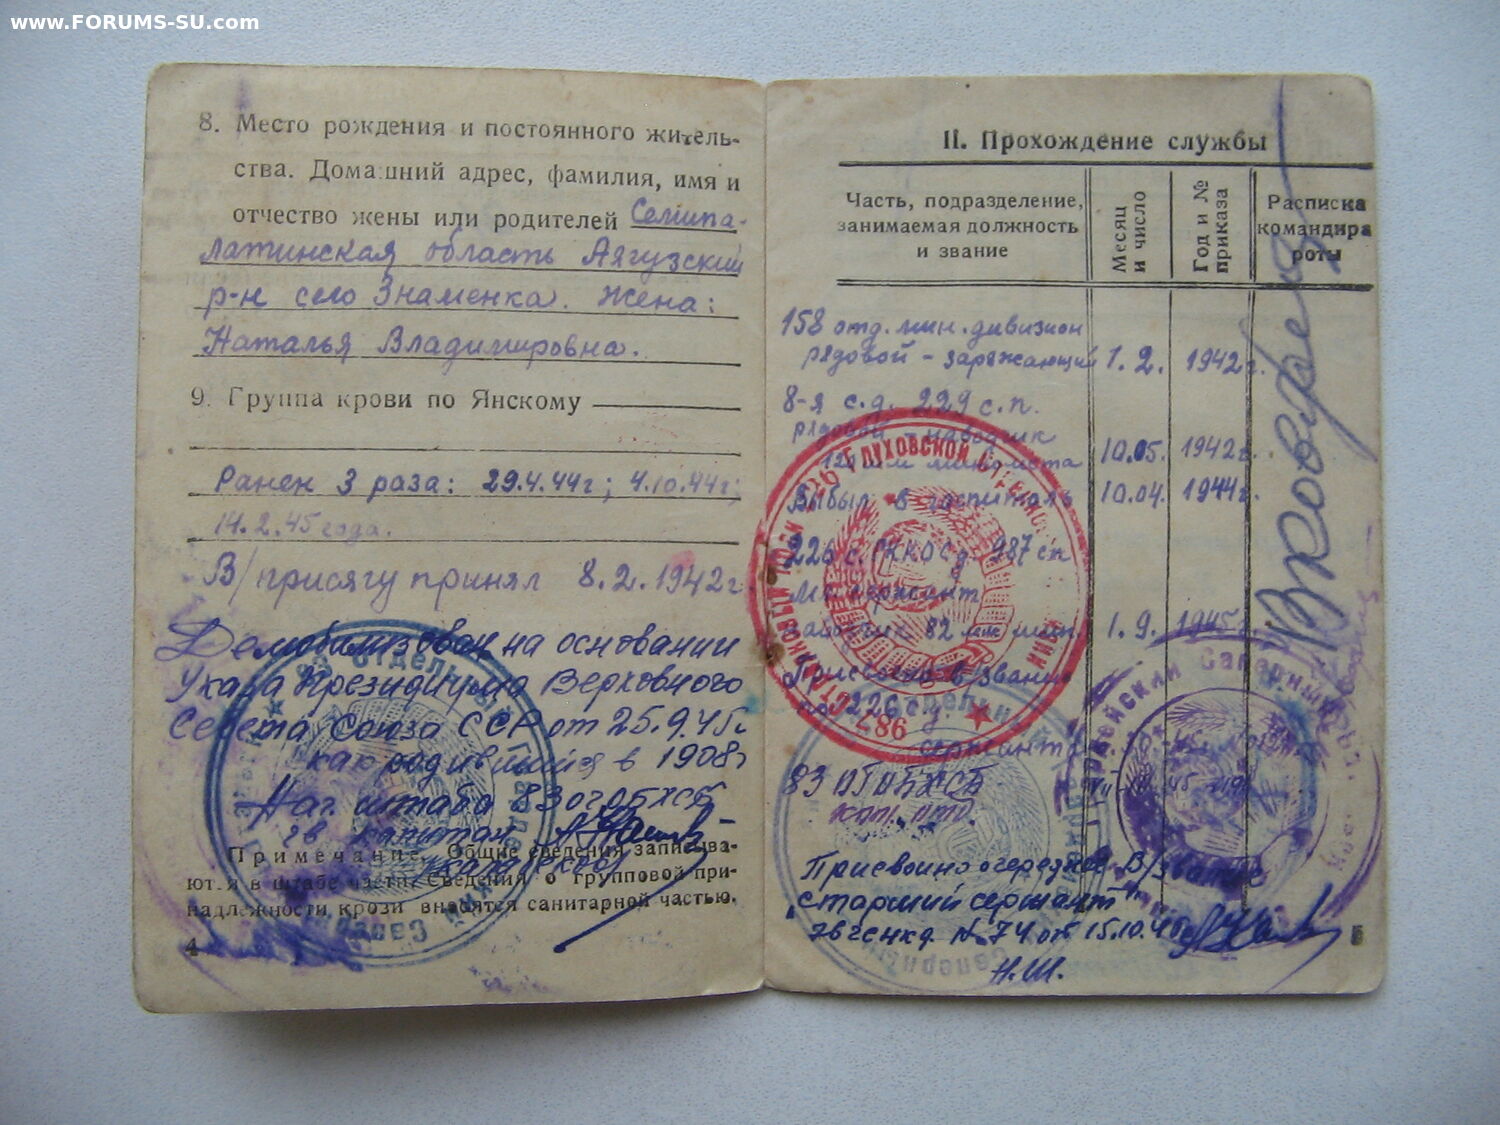 www.FORUMS-SU.com
8. Место рождения и постоянного житель-
ства. Домашний адрес, фамилия, имя и
отчество жены или родителей Семипа-
латинская область Аягузский
р-н село Знаменка. Жена:
Наталья Владимировна.
9. Группа крови по Янскому
Ранен 3 раза: 29.4.44г; 4.10.44г;
14.2.45 года.
В/присягу принял 8.2.1942г.
Демобилизован на основании
Указа Президиума Верховного
Совета Союза ССР от 25.9.45г
как родившийся в 1908г
Нач. штаба 83 ОГОБХСБ
гв. капитан
Примечание. Общие сведения записыва-
ются в штабе части. Сведения о групповой при-
надлежности крови вносятся санитарной частью.
4
II. Прохождение службы
Часть, подразделение,
занимаемая должность
и звание
Месяц
и число
Год и №
приказа
Расписка
командира
роты
158 отд. мин. дивизион
рядовой - заряжающий 1.2. 1942г.
8-я с.д. 229 с.п.
рядовой - наводчик
120 мм миномета 10.05. 1942г.
Выбыл в госпиталь 10.04. 1944г.
226 с. ККОСд. 987 сп
мл. сержант
наводчик 82 мм мин. 1.9. 1945г.
Присвоено в/звание
226 с.д.
сержант
83
Присвоино очередное В/звание
"старший сержант"
№74 от 15.10.45г
Н.Ш.
5